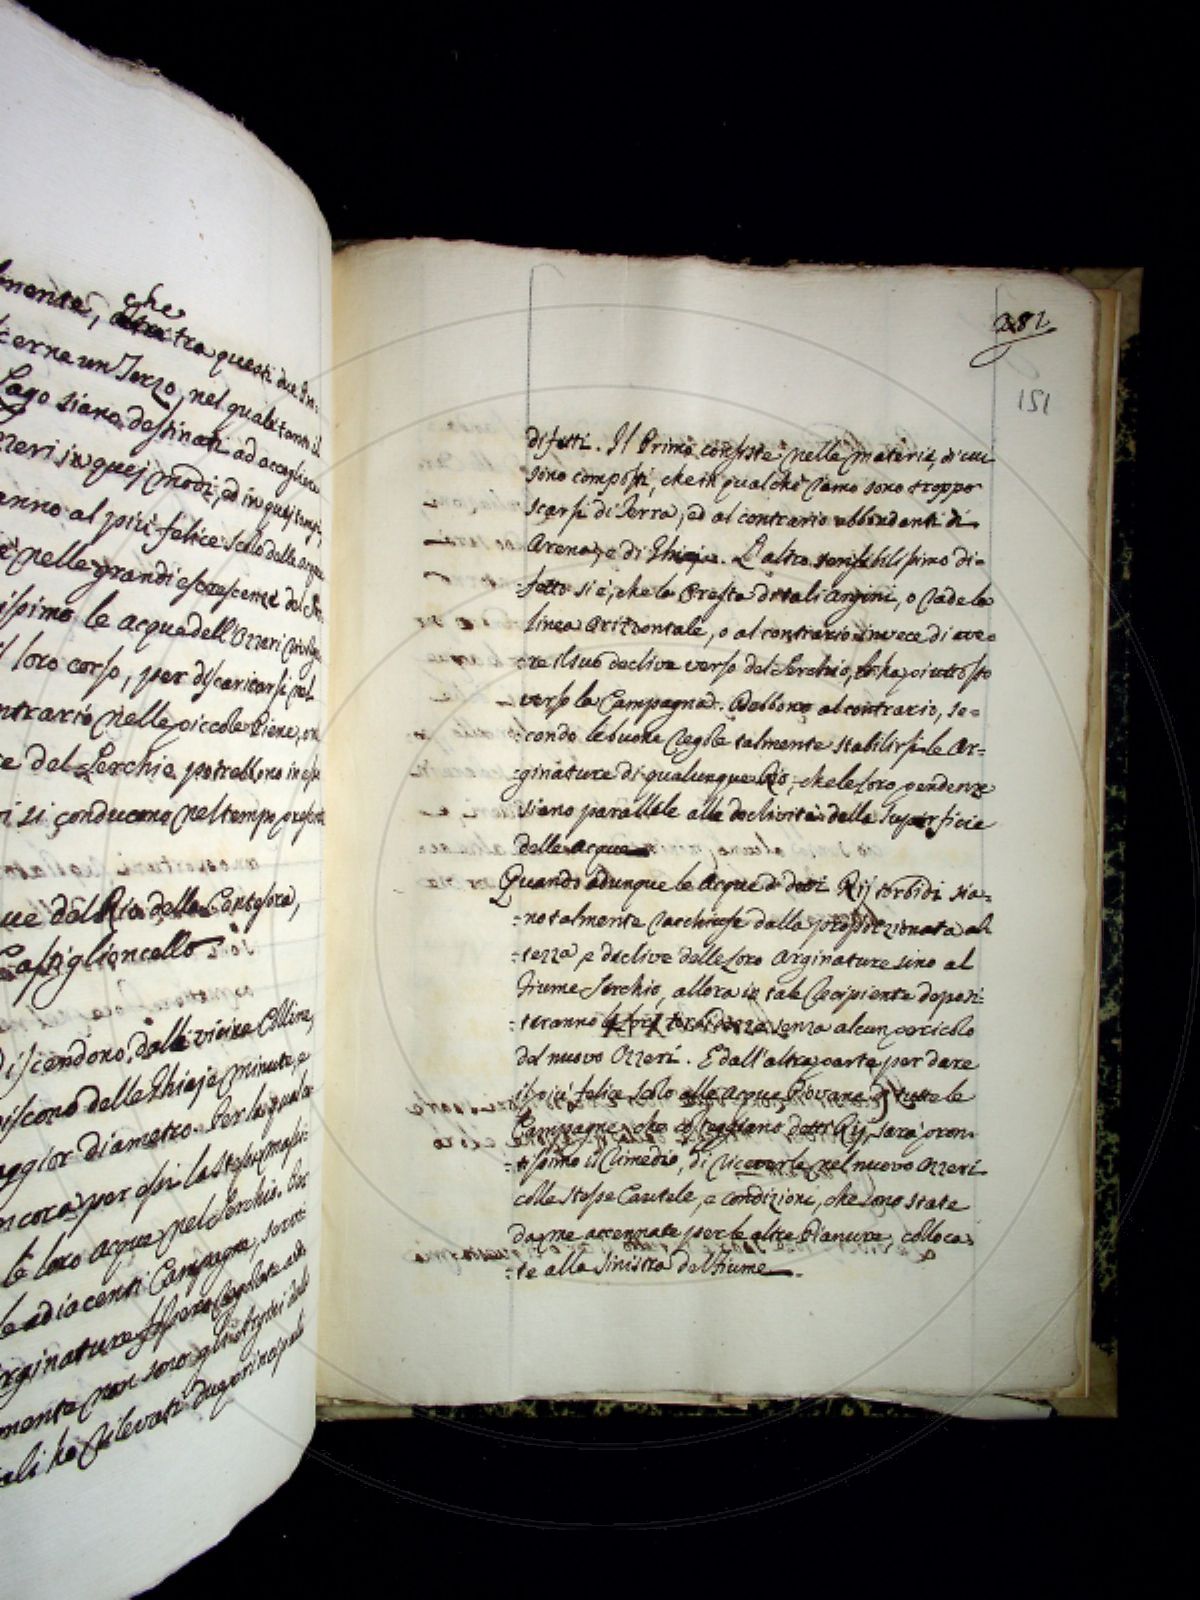 che
, tra questi due In-
cerne un Terzo, nel quale tanto il
Lago siano destinati ad accogliere
zzeri in quej modi, ed in quej tempi,
anno al più felice scolo delle acque
nelle grandi escrescenze del Ser-
issimo le acque dell'Ozzeri rivolge
il loro corso, per discaricarsi nel
ntrario nelle piccole Piene, on
e del Serchio potrebbono in esse
ri si conducono nel tempo presente
ue del Rio della Contesora,
Castiglioncello
discendono dalle vicine Colline,
riscono delle Ghiaje minute, e
aggior diametro. Per la qual
ncora per essi la stessa massi-
le loro acque nel Serchio. Onde
le adiacenti Campagne, sovente
rginature fossero regolate ad
mente non sono gli Argini delli
ali ho rilevati due principali
282
151
difetti. Il Primo consiste nelle materie, di cui
sono composti, che in qualche ramo sono troppo
scarsi di Terra, ed al contrario abbondanti di
Arena, e di Ghiaja. L'altro sensibilissimo di-
-fetto si è, che la Cresta di tali Argini, o rade la
linea Orizontale, o al contrario invece di ave-
-re il suo declive verso del Serchio, lo ha piuttosto
verso la Campagna. Debbono al contrario, se-
-condo le buone regole talmente stabilirsi le Ar-
-ginature di qualunque Rio, che le loro pendenze
siano parallele alle declività della Superficie
delle acque
Quando adunque le Acque di detti Rij torbidi sia-
-no talmente racchiuse dalla proporzionata al-
-tezza, e declive delle loro Arginature sino al
Fiume Serchio, allora in tale recipiente deposi-
-teranno le loro torbidezze senza alcun pericolo
del nuovo Ozzeri. E dall'altra parte per dare
il più felice scolo alle Acque Piovane di tutte le
Campagne, che costeggiano detti Rij, sarà pron-
-tissimo il rimedio, di riceverle nel nuovo Ozzeri
colle stesse Cautele, e condizioni, che sono state
da me accennate per le altre Pianure, colloca-
-te alla Sinistra del Fiume.